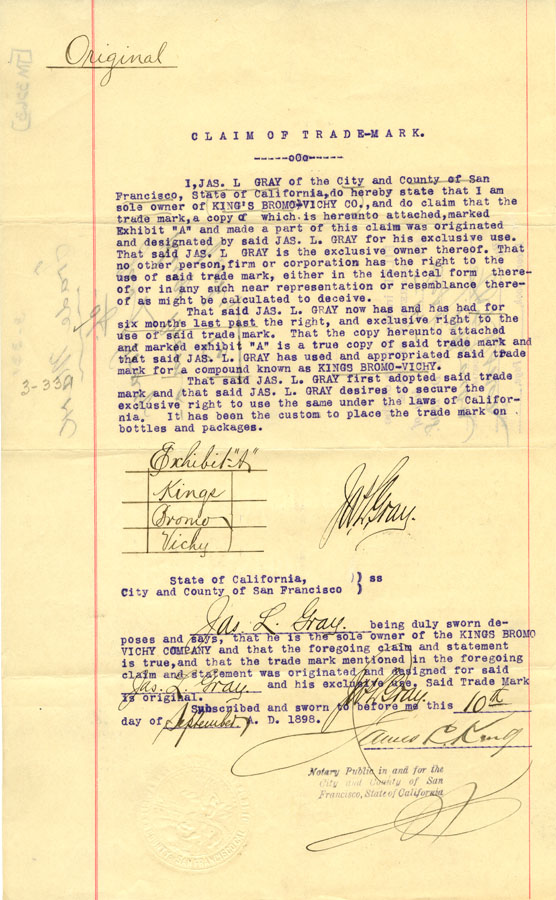 Original
CLAIM OF TRADE-MARK.
-----oOo-----
I,JAS. L GRAY of the City and County of San
Francisco, State of California,do hereby state that I am
sole owner of KING'S BROMO-VICHY CO.,and do claim that the
trade mark,a copy of which is hereunto attached,marked
Exhibit "A" and made a part of this claim was originated
and designated by said JAS. L. GRAY for his exclusive use.
That said JAS. L GRAY is the exclusive owner thereof. That
no other person,firm or corporation has the right to the
use of said trade mark, either in the identical form there-
of or in any such near representation or resemblance there-
of as might be calculated to deceive.
That said JAS. L GRAY now has and has had for
six months last past the right, and exclusive right to the
use of said trade mark. That the copy hereunto attached
and marked exhibit "A" is a true copy of said trade mark and
that said JAS. L. GRAY has used and appropriated said trade
mark for a compound known as KINGS BROMO-VICHY.
That said JAS. L. GRAY first adopted said trade
mark and that said JAS. L GRAY desires to secure the
exclusive right to use the same under the laws of Califor-
nia. It has been the custom to place the trade mark on
bottles and packages.
3-334
Exhibit "A"
Kings
Bromo
Vichy
Jas L Gray.
State of California, ) ss
City and County of San Francisco )
Jas. L. Gray. being duly sworn de-
poses and says, that he is the sole owner of the KINGS BROMO
VICHY COMPANY and that the foregoing claim and statement
is true,and that the trade mark mentioned in the foregoing
claim and statement was originated and designed for said
Jas. L. Gray and his exclusive use. Said Trade Mark
is original.
Jas L Gray.
Subscribed and sworn to before me this 10th
day of September A. D. 1898.
James R. King
Notary Public in and for the
City and County of San
Francisco, State of California